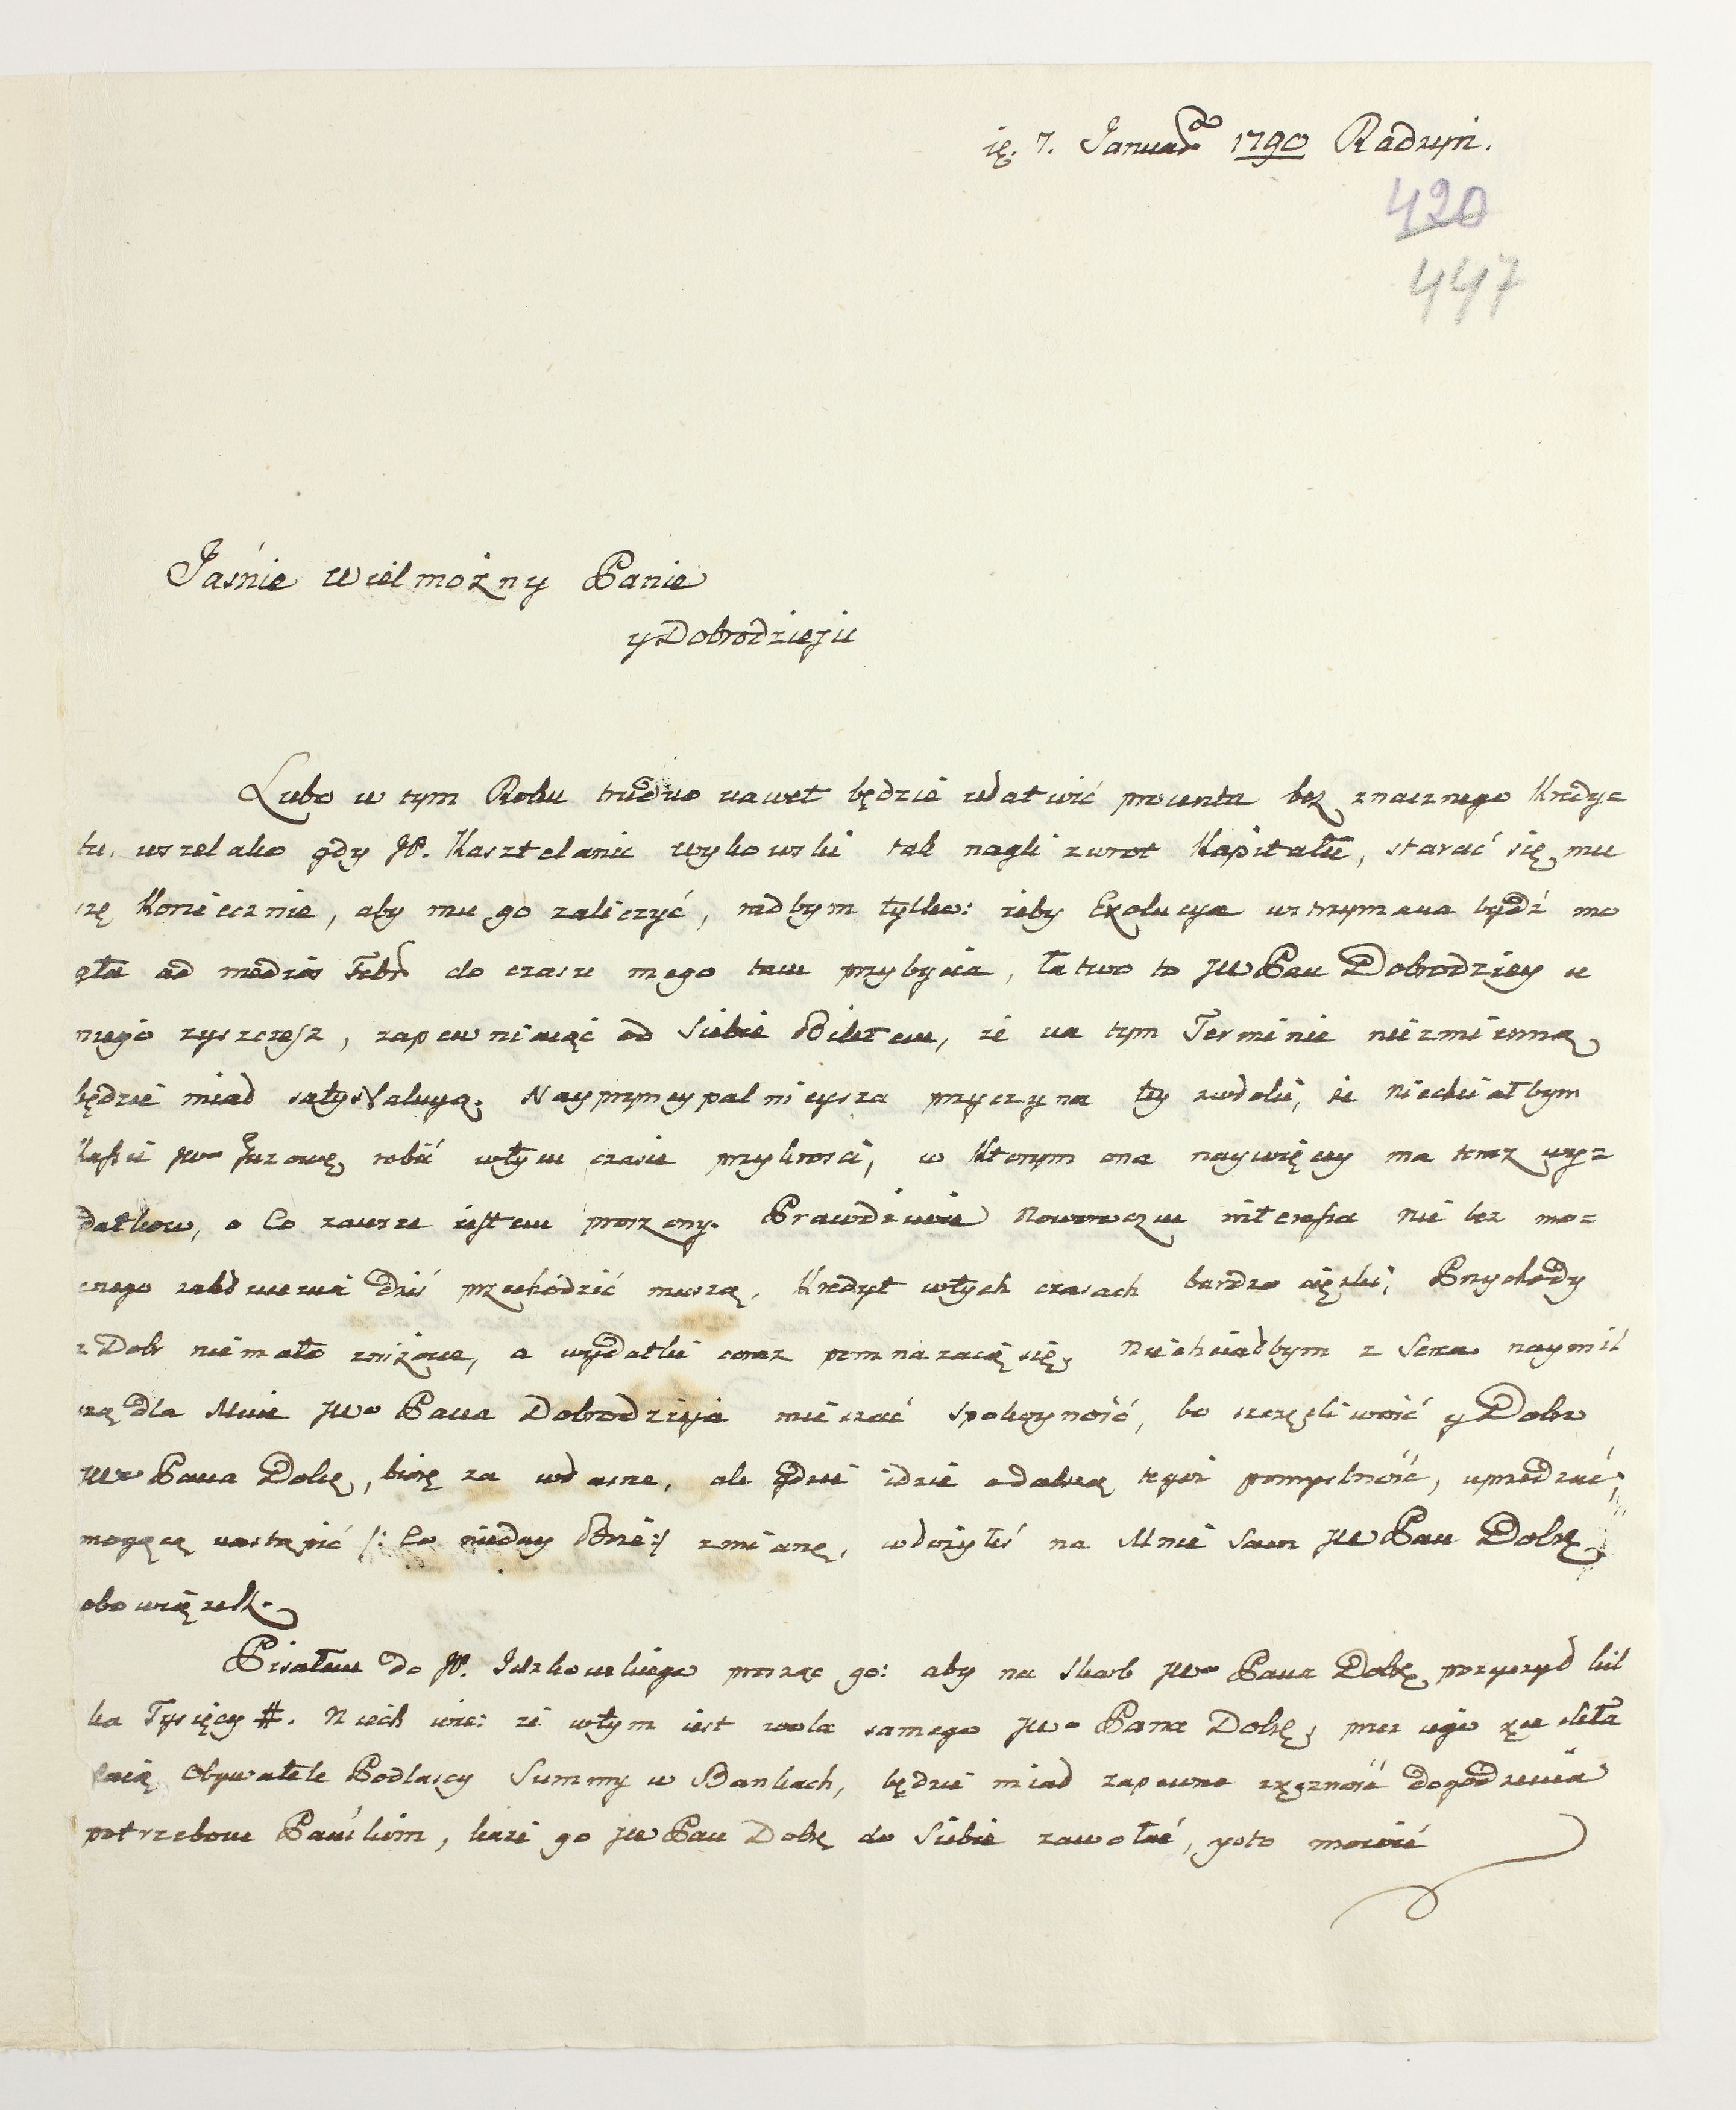 7. Januar 1790 Radzyń.
420
447
Jaśnie Wielmożny Panie
y Dobrodzieju
Lubo w tym Roku trudno nawet będzie ułatwić prowenta bez znacznego Kredy=
tu, wszelako gdy JP. Kasztelanic Wykowski tak nagli zwrot Kapitału, starać się mu
szę Koniecznie, aby mu go zaliczyć, radbym tylko: żeby Exolucya wstrzymana bydź mo
gła ad medias Febr do czasu mego tam przybycia, łatwo to JW Pan Dobrodziey u
niego zyszczesz, zapewniaiąc od Siebie Biletem, że na tym Terminie niezmienną
będzie miał satysfakcyą. Nayprzyncypalnieysza przyczyna tey zwłoki, że niechciałbym
Kassie robić w tym czasie przykrosci, w Ktorym ona naywięcey ma teraz wy=
datkow, o Co zawsze iestem proszony. Prawdziwie Noworoczne interessa nie bez mo=
cnego dziś przechodzić muszą, Kredyt w tych czasach bardzo cięski, Przychody
z Dobr niemało zniżone, a wydatki coraz pomnażaią się, Niechciałbym z Serca naymil
szą dla Mnie JWo Pana Dobrodzieja mieszać spokoyność, bo szczęśliwość y Dobro
JWo Pana Dobrę, biorę za własne, ale gdzie idzie o dalszą teyże pomyslność, uprzedzać
mogącą nastąpić /: Co nieday Boże :/ zmianę, włożyłeś na Mnie Sam JW Pan Dobrę
obowiązek.
Pisałem do JP. prosząc go: aby na Skarb JWo Pana Dobrę, pożyczył kil
ka Tysięcy #. Niech wie: że w tym iest wola samego JWo Pana Dobrę, przez iego ręce skła
daią Obywatele Podlascy Summy w Bankach, będzie miał zapewne zręczność dogodzenia
potrzebom Pańskim, każ go JW Pan Dobrę do Siebie zawołać, y o to mowić